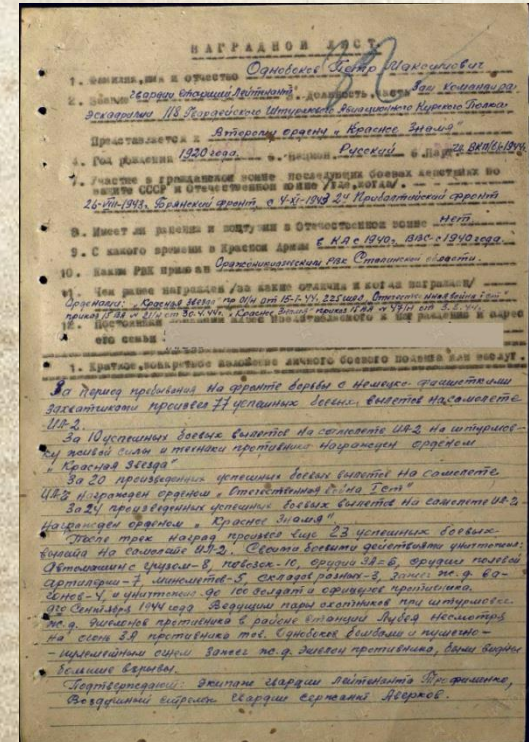 НАГРАДНОЙ ЛИСТ
1. Фамилия, имя и отчество Однобоков Петр Максимович
2. Звание Гвардии Старший Лейтенант 3. Должность, часть Зам Командира
Эскадрилии 118 Гвардейского Штурмового Авиационного Курского Полка.
Представляется к Второму ордену „Красное Знамя"
4. Год рождения 1920 года. 5. Национ. Русский 6. Парт. ВКП/б/
7. Участие в гражданской войне, последующих боевых действиях по
защите СССР и Отечественной войне /где, когда/.
26-VIII-1943г. Брянский фронт, с 4-XI-1943 2й Прибалтийский фронт
8. Имеет ли ранения и контузии в Отечественной войне Нет.
9. С какого времени в Красной Армии в КА с 1940г. ВВС с 1940 года.
10. Каким РВК призван РВК Сталинской области.
11. Чем ранее награжден /за какие отличия и когда награжден/
Орденами: „Красная звезда" пр 01/н от 15-1-44. 225 шад, Отечественная война I ст"
приказ 15 ВА № 21/н от 30.4.44г. „Красное Знамя" приказ 15 ВА № 47/н от
12. Постоянный адрес представляемого к награждению и адрес
его семьи
1. Краткое, конкретное изложение личного боевого подвига или заслуг.
За период пребывания на фронте борьбы с немецко-фашисткими
захватчиками произвел 77 успешных боевых вылетов на самолете
ИЛ-2.
За 10 успешных боевых вылетов на самолете ИЛ-2 на штурмов-
ку живой силы и техники противника награжден орденом
„Красная Звезда"
За 20 произведенных успешных боевых вылетов на самолете
ИЛ-2 награжден орденом „Отечественная Война I ст"
За 24 произведенных успешных боевых вылетов на самолете ИЛ-2
награжден орденом „Красное Знамя"
После трех наград произвел еще 23 успешных боевых
вылета на самолете ИЛ-2. Своими боевыми действиями уничтожил:
Автомашин с грузом-8, повозок-10, орудий ЗА-6, орудий полевой
артилерии-7, минометов-5, складов разных-3, зажег ж.д. ва-
гонов-4, и уничтожил до 100 солдат и офицеров противника.
Сентября 1944 года Ведущим пары охотников при штурмовке
ж.д. эшелонов противника в районе станции Лубед несмотря
на огонь ЗА противника тов. Однобоков бомбами и пушечно-
-пулеметным огнем зажег ж.д. эшелон противника, были видны
большие взрывы.
Подтверждают: Экипаж гвардии лейтенанта Трофименко,
Воздушный стрелок гвардии сержант Аверков.